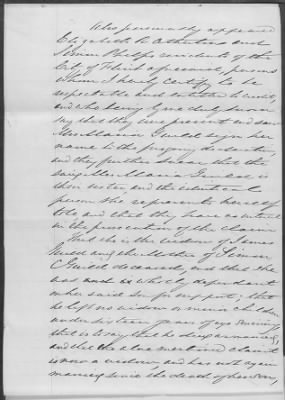 Also personally appeared
Elizabeth R. and
residents of the
City of persons
whom I hereby certify to be
respectable and entitled to credit,
and who being by me duly sworn
say that they were present and saw
Mrs Maria Guild sign her
name to the foregoing
and they further swear that the
Maria Guild is
their sister, and the identical
person she represents herself
to be, and that they have no interest
in the prosecution of this claim
That she is the widow of James
Guild and the Mother of
C Guild deceased, and that she
was wholly dependant
on her said Son for support; that
he left no widow or minor children
under sixteen years of age surviving,
that is to say that he died unmarried,
and that the above mentioned claimant
is now a widow, and has not again
married since the death of her son,